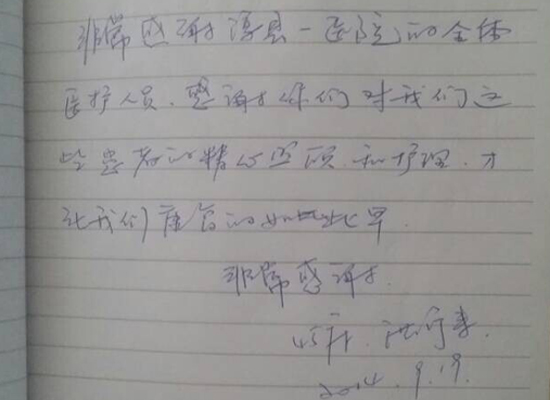 非常感谢蓟县一医院的全体
医护人员，感谢你们对我们这
些患者的精心照顾和护理，才
让我们康复的如此之早．
非常感谢．
45床．洪
2014．9．19．